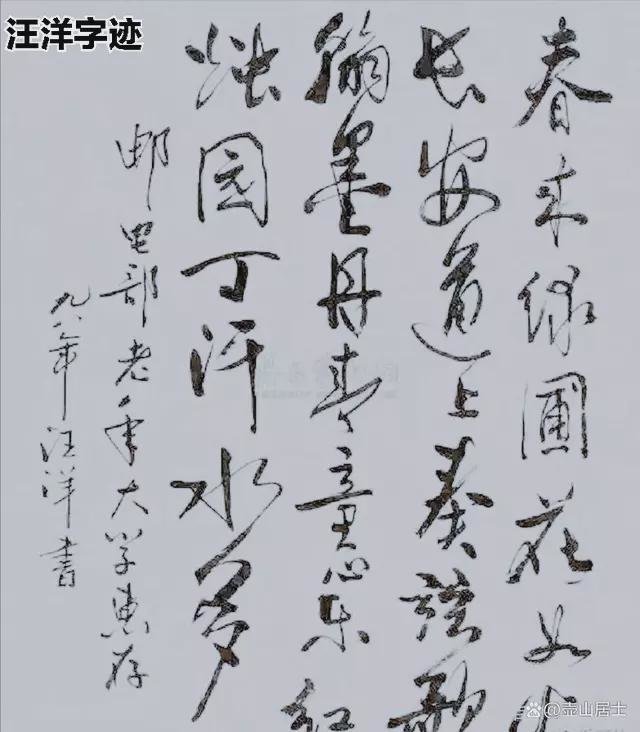 汪洋字迹
春来绿圃花如
长安道上奏歌
翰墨丹青童心乐红
烛园丁汗水多
邮电部老年大学惠存
九八年汪洋书
@壶山居士